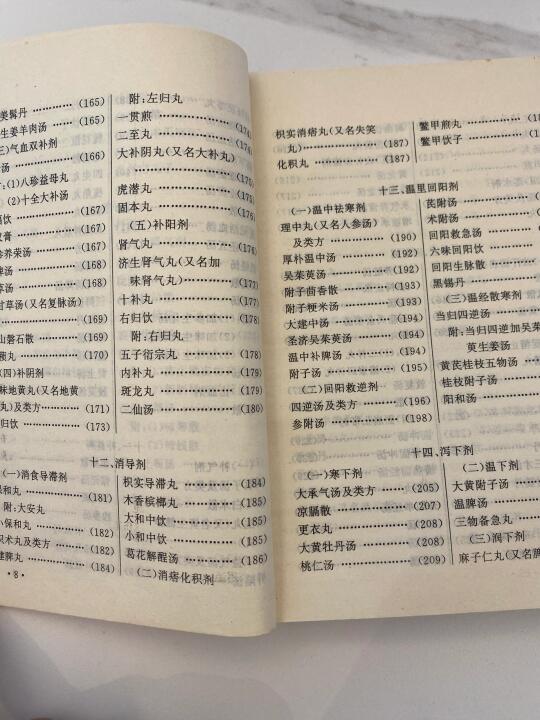 美髯丹 (165)
生姜羊肉汤 (165)
(三)气血双补剂
汤 (166)
:(1)八珍益母丸
(2)十全大补汤
(167)
膏 (167)
养荣汤 (168)
汤 (168)
汤 (168)
甘草汤(又名复脉汤)
(169)
山磐石散 (169)
丸 (170)
(四)补阴剂
味地黄丸(又名地黄
丸)及类方 (171)
归饮 (173)
附:左归丸
一贯煎
二至丸
大补阴丸(又名大补丸)
虎潜丸
固本丸
(五)补阳剂
肾气丸
济生肾气丸(又名加
味肾气丸) (177)
十补丸 (177)
右归饮 (178)
附:右归丸
五子衍宗丸 (178)
内补丸 (179)
斑龙丸 (179)
二仙汤 (180)
十二、消导剂
(一)消食导滞剂
保和丸 (181)
附:大安丸
小保和丸 (182)
枳术丸及类方 (182)
健脾丸 (184)
枳实导滞丸 (184)
木香槟榔丸 (185)
大和中饮 (185)
小和中饮 (185)
葛花解酲汤 (186)
(二)消痞化积剂
·8·
枳实消痞丸(又名失笑
丸) (187)
化积丸 (187)
鳖甲煎丸
鳖甲饮子
十三、温里回阳剂
(一)温中祛寒剂
理中丸(又名人参汤)
及类方 (190)
厚朴温中汤 (192)
吴茱萸汤 (192)
附子茴香散 (193)
附子粳米汤 (193)
大建中汤 (194)
圣济吴茱萸汤 (194)
温中补脾汤 (194)
附子汤 (195)
(二)回阳救逆剂
四逆汤及类方 (196)
参附汤 (198)
芪附汤
术附汤
回阳救急汤
六味回阳饮
回阳生脉散
黑锡丹
(三)温经散寒剂
当归四逆汤
附:当归四逆加吴茱
萸生姜汤
黄芪桂枝五物汤
桂枝附子汤
阳和汤
十四、泻下剂
(一)寒下剂
大承气汤及类方 (205)
凉膈散 (207)
更衣丸 (208)
大黄牡丹汤 (208)
桃仁汤 (209)
(二)温下剂
大黄附子汤
温脾汤
三物备急丸
(三)润下剂
麻子仁丸(又名脾